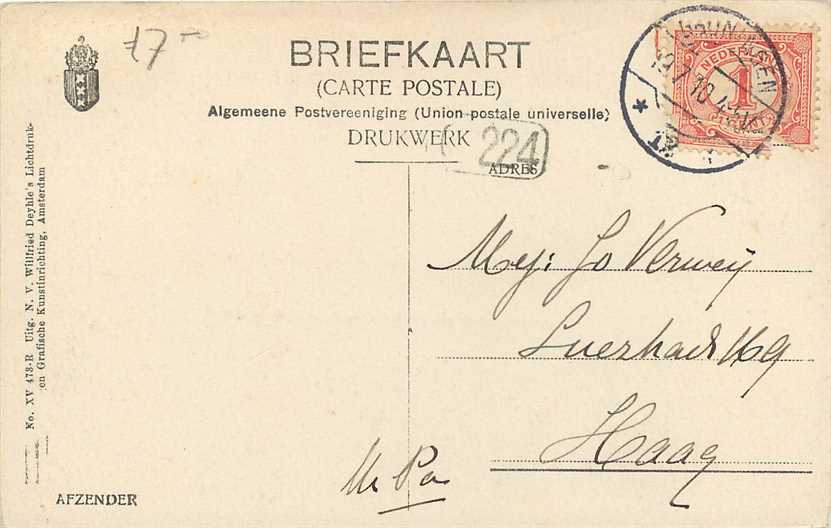 f7-
BRIEFKAART
(CARTE POSTALE)
Algemeene Postvereeniging (Union postale universelle)
DRUKWERK
224
ADRES
NEDERLAND
1
CENT
7 10 4
Mej: Jo Verweij
169
Haag
Uw Pa
AFZENDER
No. XV 473-R Uitg. N. V. Willfried Deyhle's Lichtdruk-
en Grafische Kunstinrichting, Amsterdam